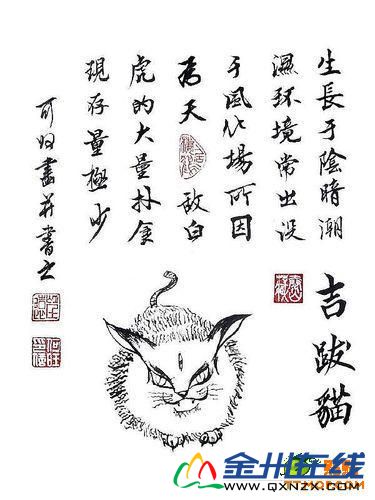 吉跋貓
生長于陰暗潮
濕環境常出沒
于風化場所因
為天敵白
虎的大量扑食
現存量極少
畫并書之
金州在线
WWW.QXNZX.COM